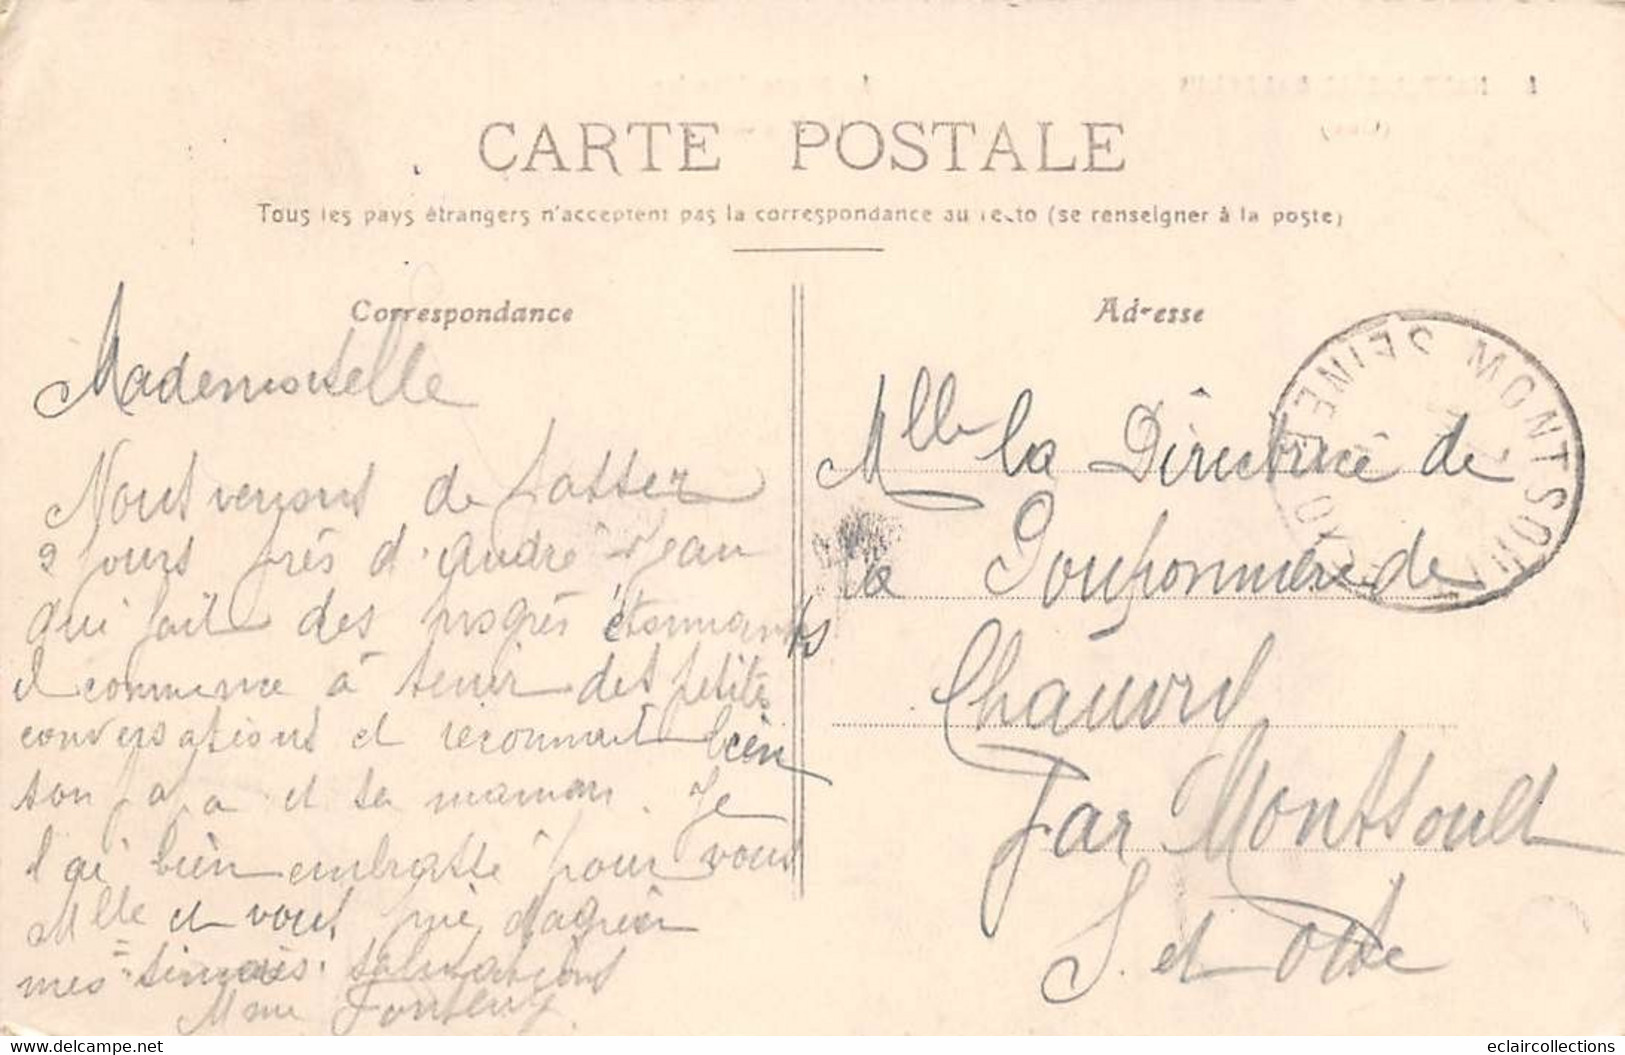 CARTE POSTALE
Tous les pays étrangers n'acceptent pas la correspondance au recto (se renseigner à la poste)
Correspondance
Mademoiselle
Nous venons de passer
2 jours près d'André Jean
qui fait des progrès étonnants
il commence à tenir des petites
conversations et reconnait bien
son papa et sa maman. Je
l'ai bien embrassé pour vous
Mlle et vous prie d'agréer
mes sincères salutations
Mme
Adresse
Mlle la Directrice de
la Pouponnière de
Chauvry
Par Montsoult
S. et Oise
MONTSOULT
SEINE ET OISE
www.delcampe.net
eclaircollections